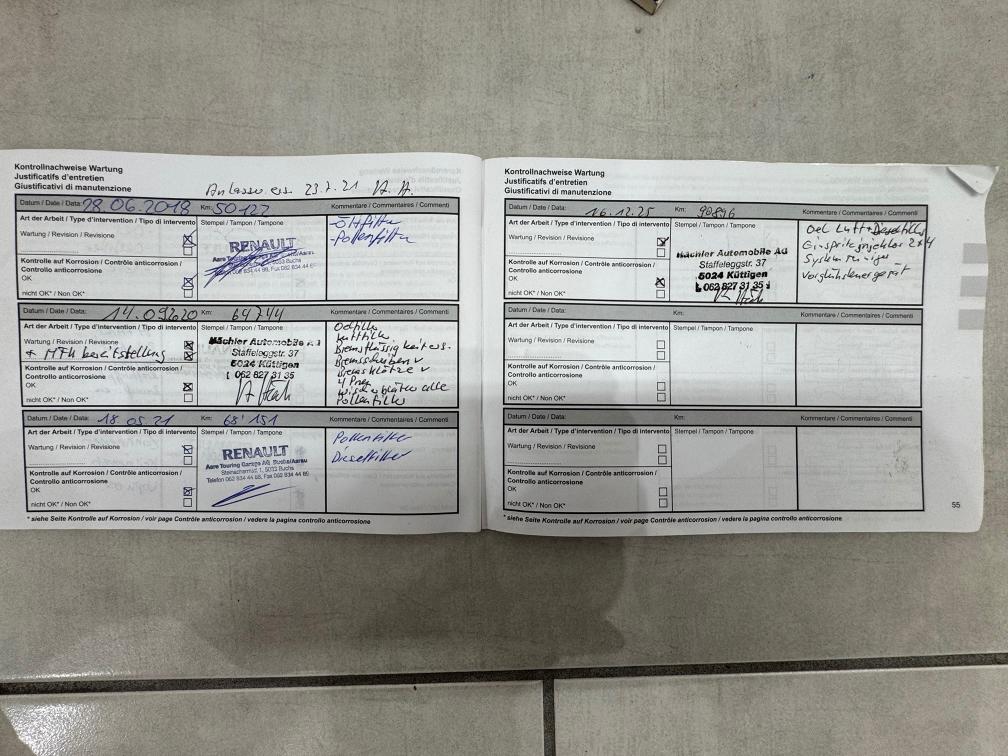 Kontrollnachweise Wartung
Justificatifs d'entretien
Giustificativi di manutenzione
Anlasser ers. 23.7.21
Datum / Date / Data: 28.06.2018 Km: 50127 Kommentare / Commentaires / Commenti
Art der Arbeit / Type d'intervention / Tipo di intervento Stempel / Tampon / Tampone
-Ölfilter
-Pollenfilter
Wartung / Revision / Revisione
RENAULT
Kontrolle auf Korrosion / Contrôle anticorrosion /
Controllo anticorrosione
OK
nicht OK* / Non OK*
Datum / Date / Data: 14.09.2020 Km: 64744 Kommentare / Commentaires / Commenti
Art der Arbeit / Type d'intervention / Tipo di intervento Stempel / Tampon / Tampone
Wartung / Revision / Revisione
+ MFK bereitstellung
Mächler Automobile AG
Staffeleggstr. 37
5024 Küttigen
062 827 31 35
Oelfilter
Luftfilter
Bremsflüssigkeit ers.
Bremsscheiben v
Bremsklötze v
4 Pneu
Wischerblätter alle
Pollenfilter
Kontrolle auf Korrosion / Contrôle anticorrosion /
Controllo anticorrosione
OK
nicht OK* / Non OK*
Datum / Date / Data: 18.05.21 Km: 68'151 Kommentare / Commentaires / Commenti
Art der Arbeit / Type d'intervention / Tipo di intervento Stempel / Tampon / Tampone
Wartung / Revision / Revisione
RENAULT
Aare Touring Garage AG Buchs/Aarau
Steinachermatt 1, 5033 Buchs
Telefon 062 834 44 88, Fax 062 834 44 89
Pollenfilter
Dieselfilter
Kontrolle auf Korrosion / Contrôle anticorrosion /
Controllo anticorrosione
OK
nicht OK* / Non OK*
* siehe Seite Kontrolle auf Korrosion / voir page Contrôle anticorrosion / vedere la pagina controllo anticorrosione
Kontrollnachweise Wartung
Justificatifs d'entretien
Giustificativi di manutenzione
Datum / Date / Data: 16.12.25 Km: 90896 Kommentare / Commentaires / Commenti
Art der Arbeit / Type d'intervention / Tipo di intervento Stempel / Tampon / Tampone
Wartung / Revision / Revisione
Mächler Automobile AG
Staffeleggstr. 37
5024 Küttigen
062 827 31 35
Oel Luft+Dieselfilter
Einspritzinjektor 2+4
System
Vorglühkerzen geprüft
Kontrolle auf Korrosion / Contrôle anticorrosion /
Controllo anticorrosione
OK
nicht OK* / Non OK*
Datum / Date / Data: Km: Kommentare / Commentaires / Commenti
Art der Arbeit / Type d'intervention / Tipo di intervento Stempel / Tampon / Tampone
Wartung / Revision / Revisione
Kontrolle auf Korrosion / Contrôle anticorrosion /
Controllo anticorrosione
OK
nicht OK* / Non OK*
Datum / Date / Data: Km: Kommentare / Commentaires / Commenti
Art der Arbeit / Type d'intervention / Tipo di intervento Stempel / Tampon / Tampone
Wartung / Revision / Revisione
Kontrolle auf Korrosion / Contrôle anticorrosion /
Controllo anticorrosione
OK
nicht OK* / Non OK*
* siehe Seite Kontrolle auf Korrosion / voir page Contrôle anticorrosion / vedere la pagina controllo anticorrosione
55